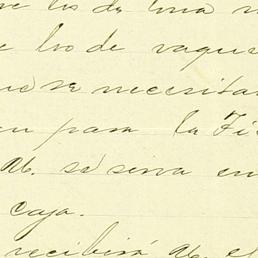 los de lona
lvo de vaque
se necesitar
para la Fi
Ab. se sirva en
caja.
recibirá Ab. el